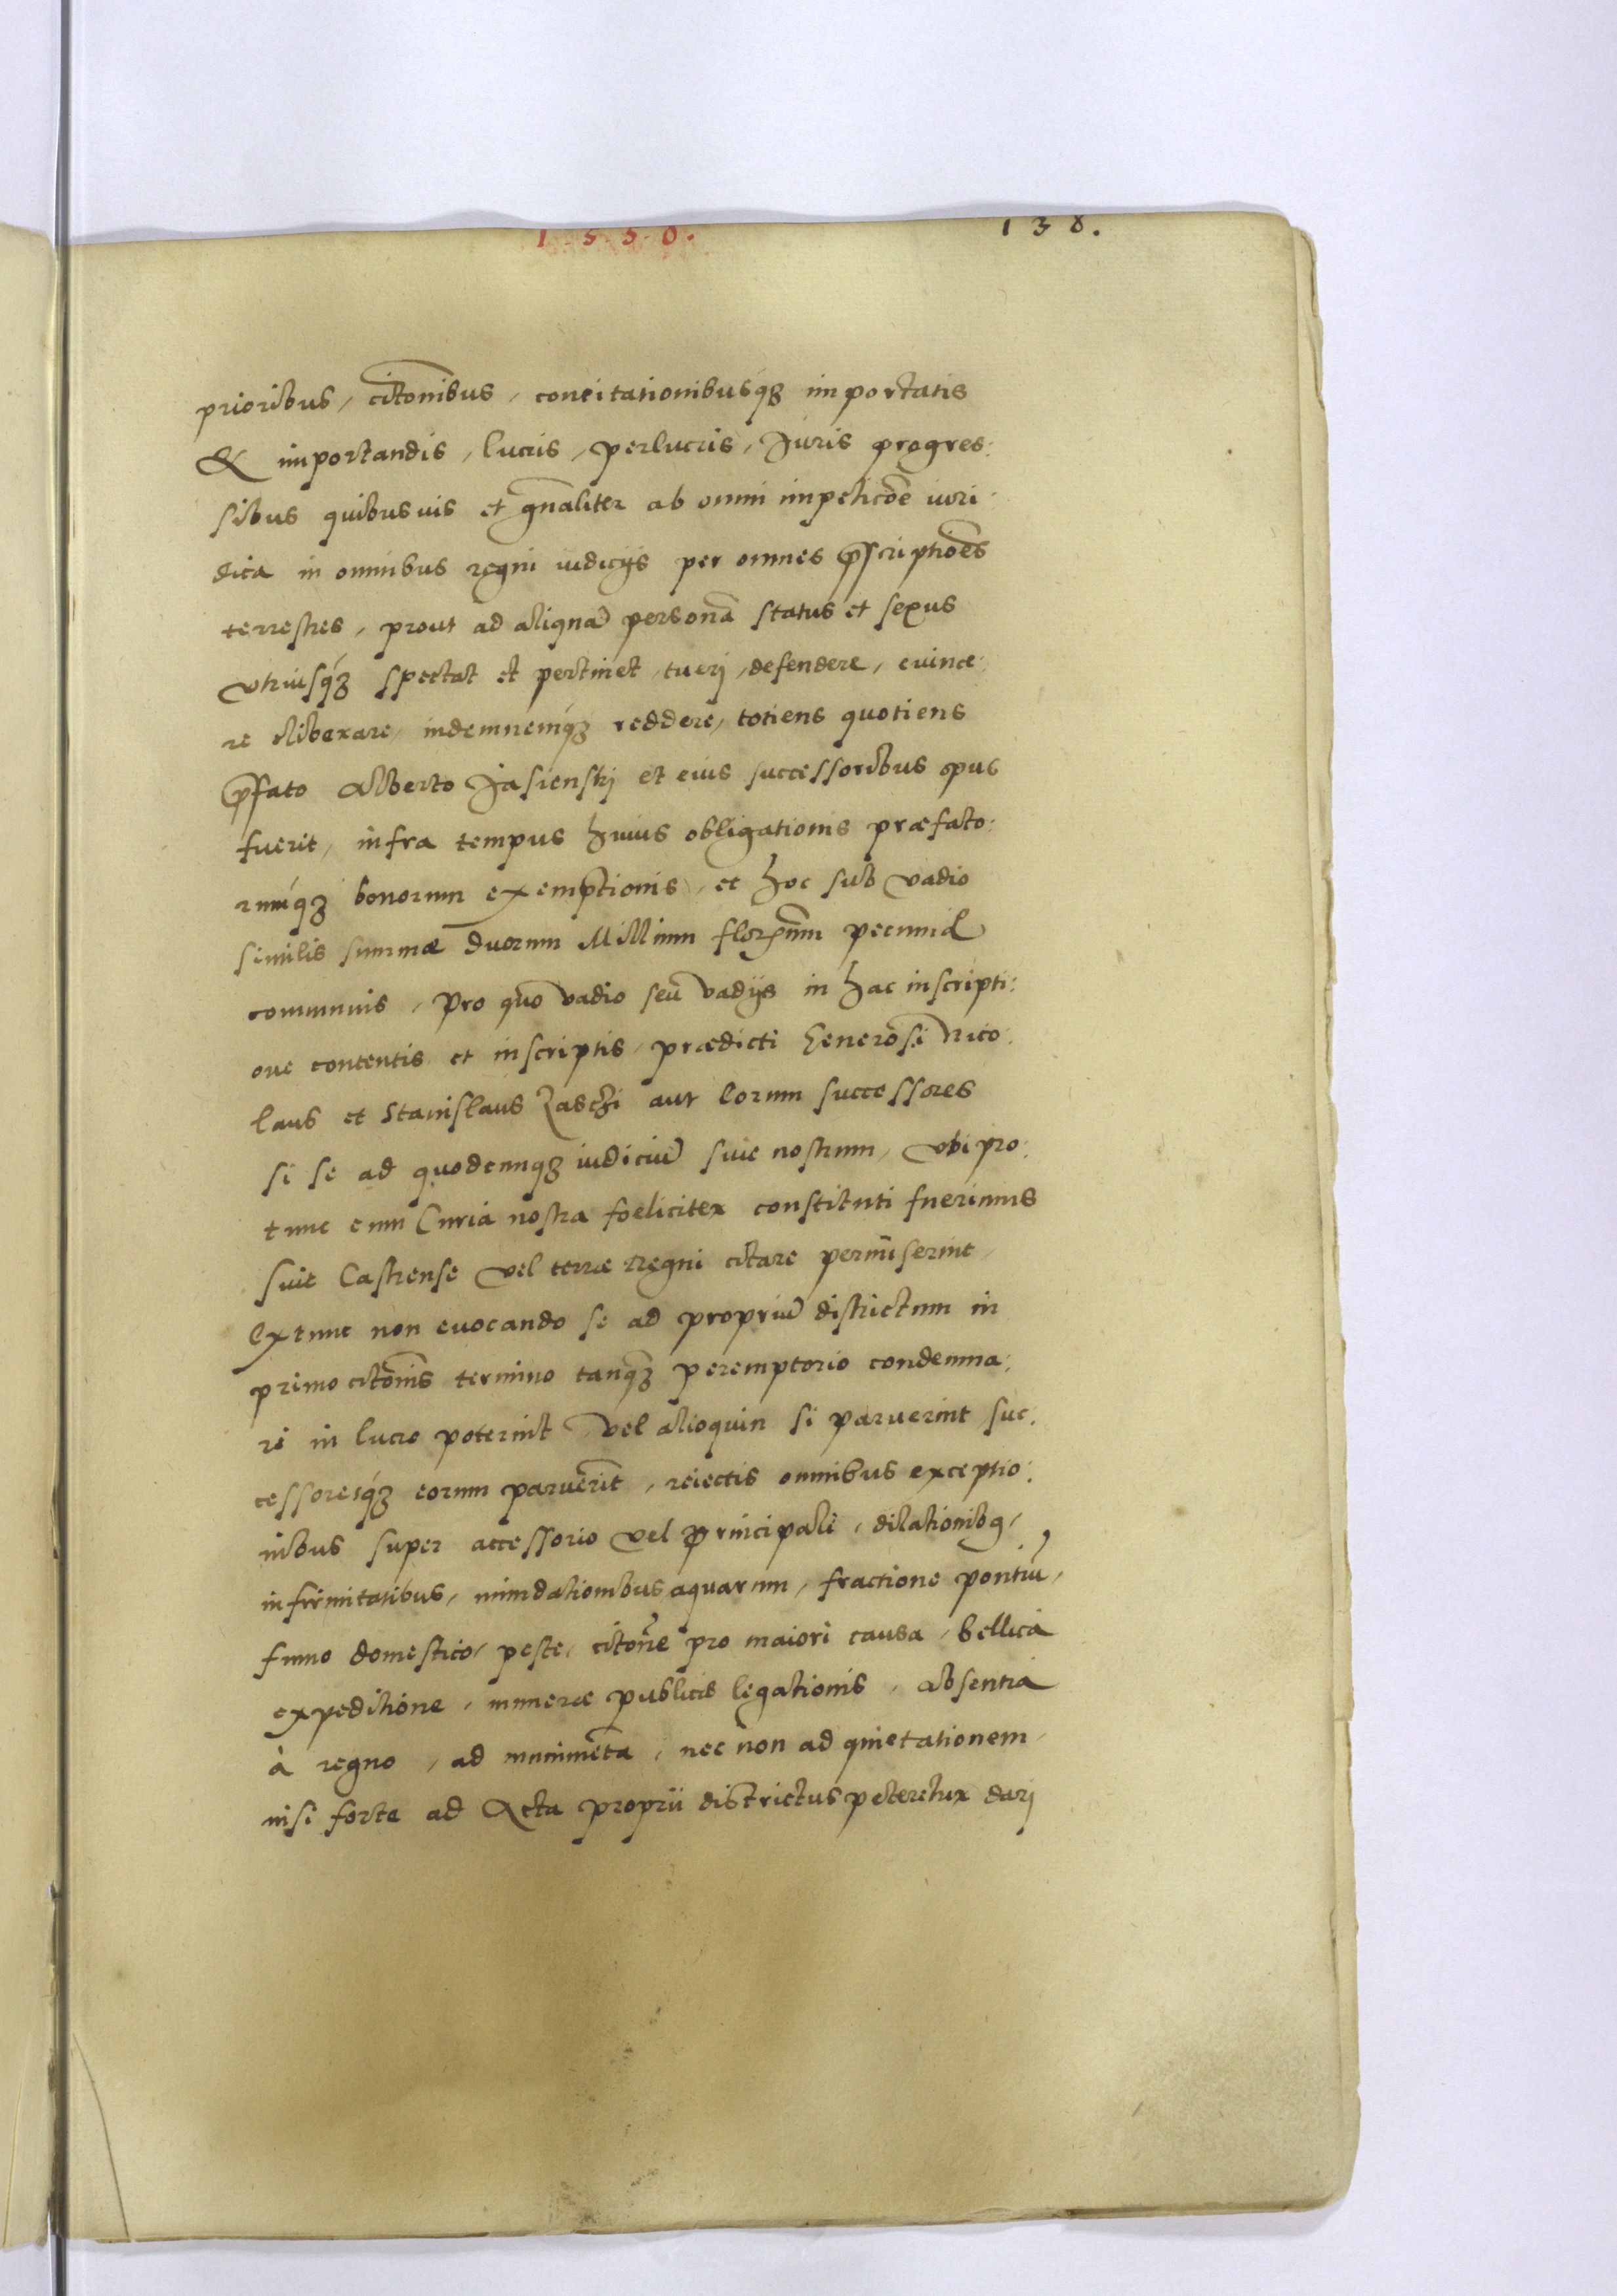 1 5 5 0.
1 3 8.
prioribus, citõnibus, concitationibusq́ꝫ importatis
& importandis, lucris, perlucris, Juris progres:
sibus quibusuis et gñaliter ab omni impeticõe iuri:
dica in omnibus regni iudicijs per omnes p̃scriptiões
terrestres, prout ad aliquã personã status et sexus
vtriusq́ꝫ spectat et pertinet, tuerj, defendere, euince:
re liberare, indemnemq́ꝫ reddere, totiens quotiens
p̃fato Alberto Jasienskj et eius successoribus opus
fuerit, infra tempus huius obligationis præfato:
rumq́ꝫ bonorum exemptionis, et hoc sub vadio
similis summæ duorum Millium flor̃num pecuniæ
communis, Pro quo vadio seu vadijs in hac inscripti:
one contentis et inscriptis, prædicti Generosi Nico:
laus et Stanislaus Zaschi aut Eorum successores
si se ad quodcunqꝫ iudiciũ siue nostrum, vbi pro:
tunc cum Curia nostra fœliciter constituti fuerimus
siue Castrense vel terræ Regni citare permiserint,
Extunc non euocando se ad propriũ districtum in
primo citõnis termino tanqꝫ peremptorio condemna:
ri in lucro poterint, Vel alioquin si paruerint suc:
cessoresq́ꝫ eorum paruerit, reiectis omnibus exceptio:
nibus super accessorio vel principali, dilationibꝗ,
infirmitatibus, inundationibus aquarum, fractione pontiũ,
fumo domestico, peste, citõne pro maiori causa, bellica
expeditione, munere publicis legationis, absentia
à regno, ad munimẽta, nec non ad quietationem,
nisi forte ad Acta proprii districtus peteretur darj